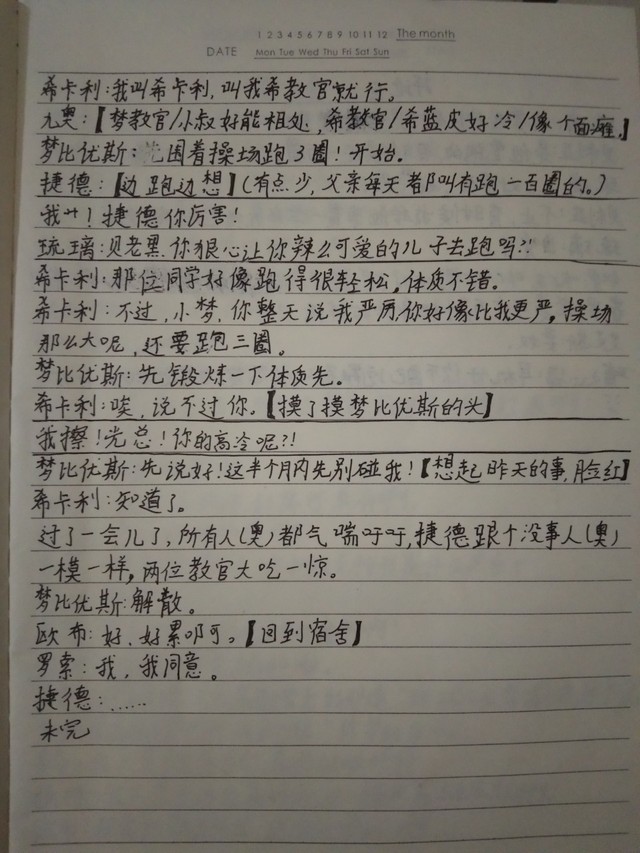 1 2 3 4 5 6 7 8 9 10 11 12 The month
DATE Mon Tue Wed Thu Fri Sat Sun
希卡利:我叫希卡利,叫我希教官就行。
九奥:【梦教官/小叔好能相处,希教官/希蓝皮好冷/像个面瘫】
梦比优斯:先围着操场跑3圈!开始。
捷德:【边跑边想】(有点少,父亲每天都叫有跑一百圈的。)
我艹!捷德你厉害!
琉璃:贝老黑,你狠心让你辣么可爱的儿子去跑吗?!
希卡利:那位同学好像跑得很轻松,体质不错。
希卡利:不过,小梦,你整天说我严厉,你好像比我更严,操场
那么大呢,还要跑三圈。
梦比优斯:先锻炼一下体质先。
希卡利:唉,说不过你。【摸了摸梦比优斯的头】
我擦!光总!你的高冷呢?!
梦比优斯:先说好!这半个月内先别碰我!【想起昨天的事,脸红】
希卡利:知道了。
过了一会儿了,所有人(奥)都气喘吁吁,捷德跟个没事人(奥)
一模一样,两位教官大吃一惊。
梦比优斯:解散。
欧布:好,好累啊。【回到宿舍】
罗索:我,我同意。
捷德:……
未完